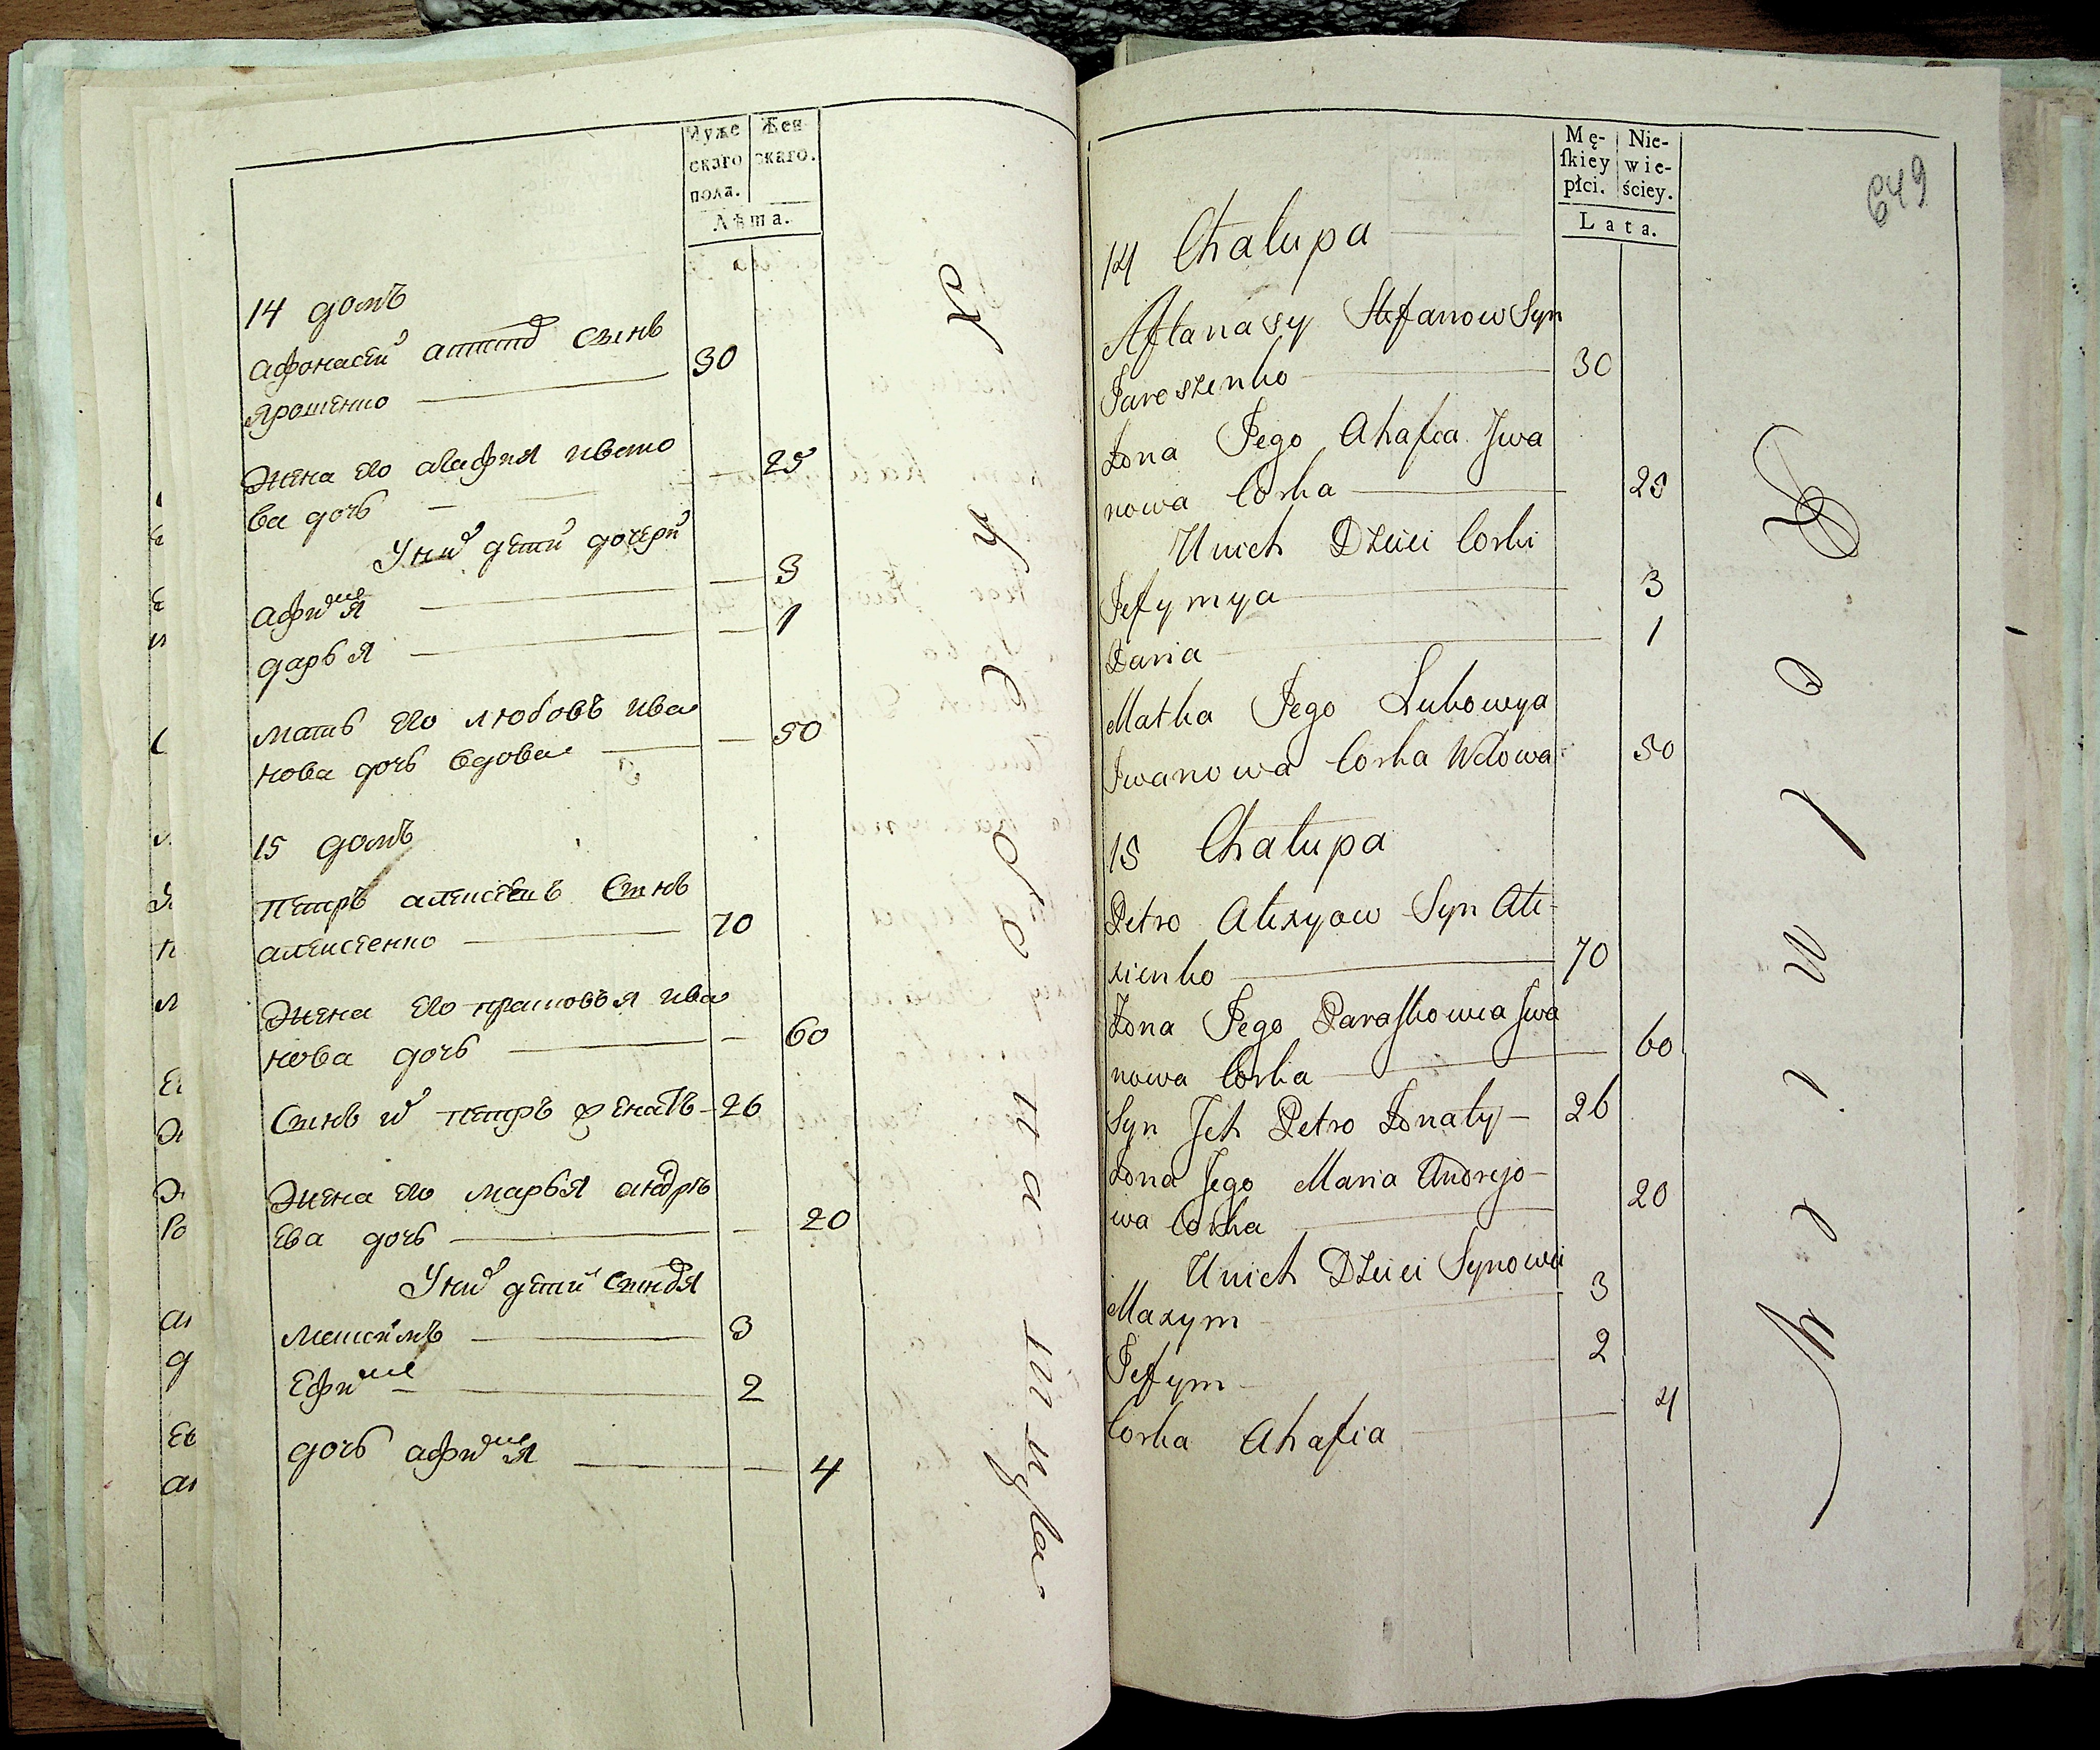 Муже Жен
скаго скаго.
пола.
Лѣта.
14 домъ
Афонасей сынъ
Ярошенко 30
Жена его агафия ивано
ва дочь 25
У них дети дочери
афимия 3
дарья 1
мать его любовь ива
нова дочь вдова 50
15 домъ
петръ алексеевъ сынъ
алексеенко 70
Жена его прасковья ива
нова дочь 60
Сынъ их петръ женатъ 26
Жена его марья андре
ева дочь 20
У них дети сыновя
максимъ 3
Ефим 2
дочь афимия 4
Mę- Nie-
ſkiey wie-
płci. ściey.
Lata.
649
14 Chałupa
Aftanasy Stefanow Syn
Jaroszenko 30
Żona Jego Ahafia Jwa
nowa Corka 25
U nich Dzieci Corki
Jefymya 3
Daria 1
Matka Jego Lubowya
Jwanowa Corka Wdowa 50
15 Chałupa
Petro Alexyow Syn Ale-
xienko 70
Żona Jego Paraskowia Jwa
nowa Corka 60
Syn Jch Petro Żonaty 26
Żona Jego Maria Andrejo-
wa Corka 20
U nich Dzieci Synowie
Maxym 3
Jefym 2
Corka Ahafia 4